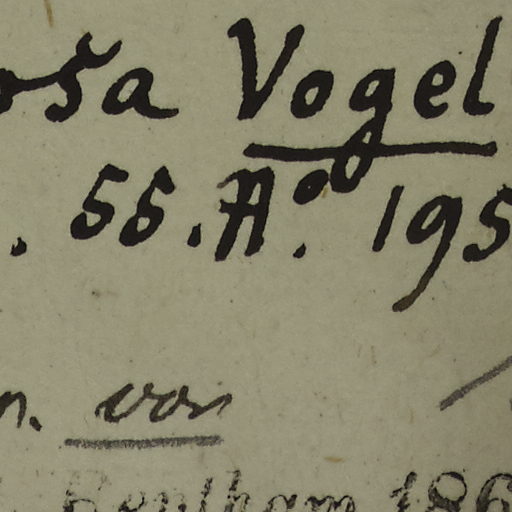 osa Vogel
. 55. Aº. 195
n. von
Bentham 186